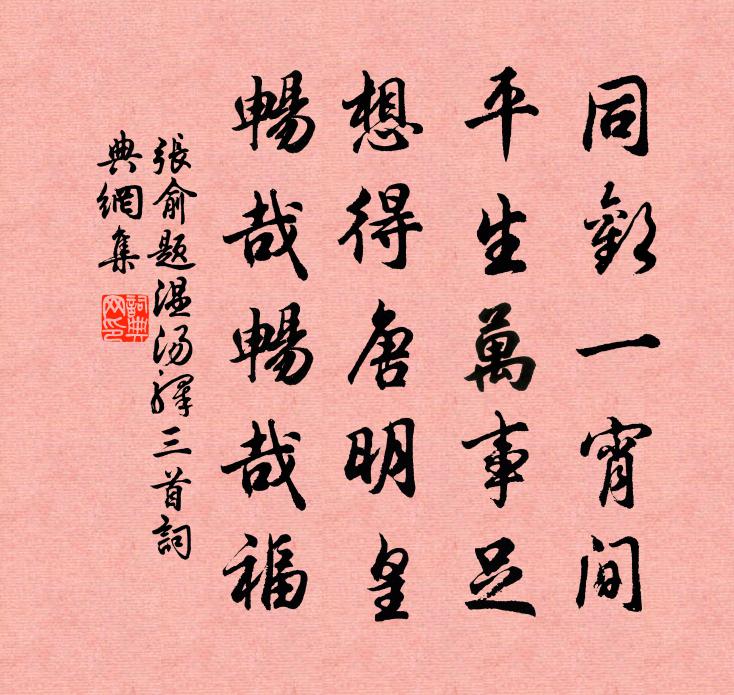 同歡一宵間
平生萬事足
想得唐明皇
暢哉暢哉福
張俞題温湯驛三首詞
典網集
詞典网印